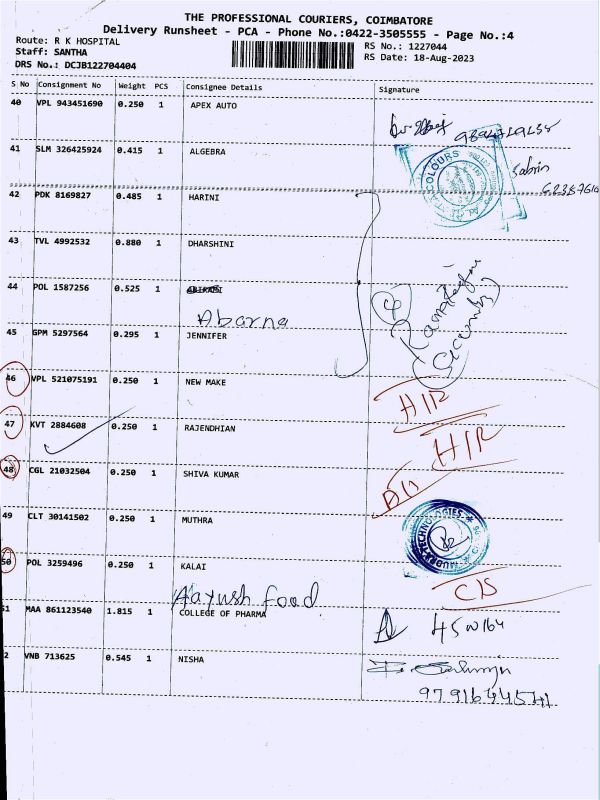 THE PROFESSIONAL COURIERS, COIMBATORE
Delivery Runsheet - PCA - Phone No.:0422-3505555 - Page No.:4
Route: R K HOSPITAL
RS No.: 1227044
Staff: SANTHA
RS Date: 18-Aug-2023
DRS No.: DCJB122704404
S No Consignment No Weight PCS Consignee Details Signature
40 VPL 943451690 0.250 1 APEX AUTO
41 SLM 326425924 0.415 1 ALGEBRA
COLOURS
Sabrin
42 PDK 8169827 0.485 1 HARINI
43 TVL 4992532 0.880 1 DHARSHINI
44 POL 1587256 0.525 1
Abarna
(Security)
45 GPM 5297564 0.295 1 JENNIFER
46 VPL 521075191 0.250 1 NEW MAKE
H/R
47 KVT 2884608 0.250 1 RAJENDHIAN
H/R
48 CGL 21032504 0.250 1 SHIVA KUMAR
49 CLT 30141502 0.250 1 MUTHRA
TECHNOLOGIES
50 POL 3259496 0.250 1 KALAI
C/S
Aayush Food
51 MAA 861123540 1.815 1 COLLEGE OF PHARMA
2 VNB 713625 0.545 1 NISHA
9791644541